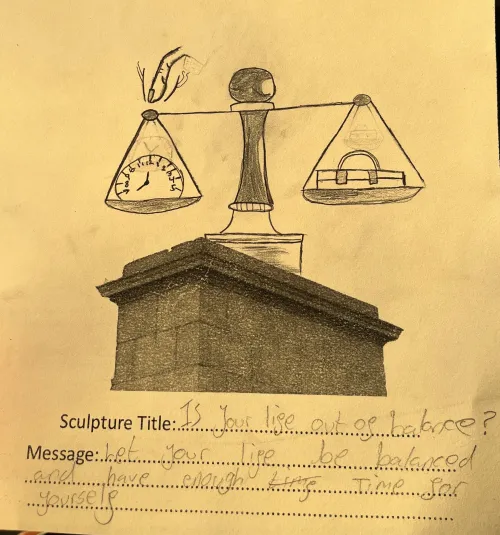 Sculpture Title: Is your life out of balance?
Message: Let your life be balanced
and have enough time for
yourself